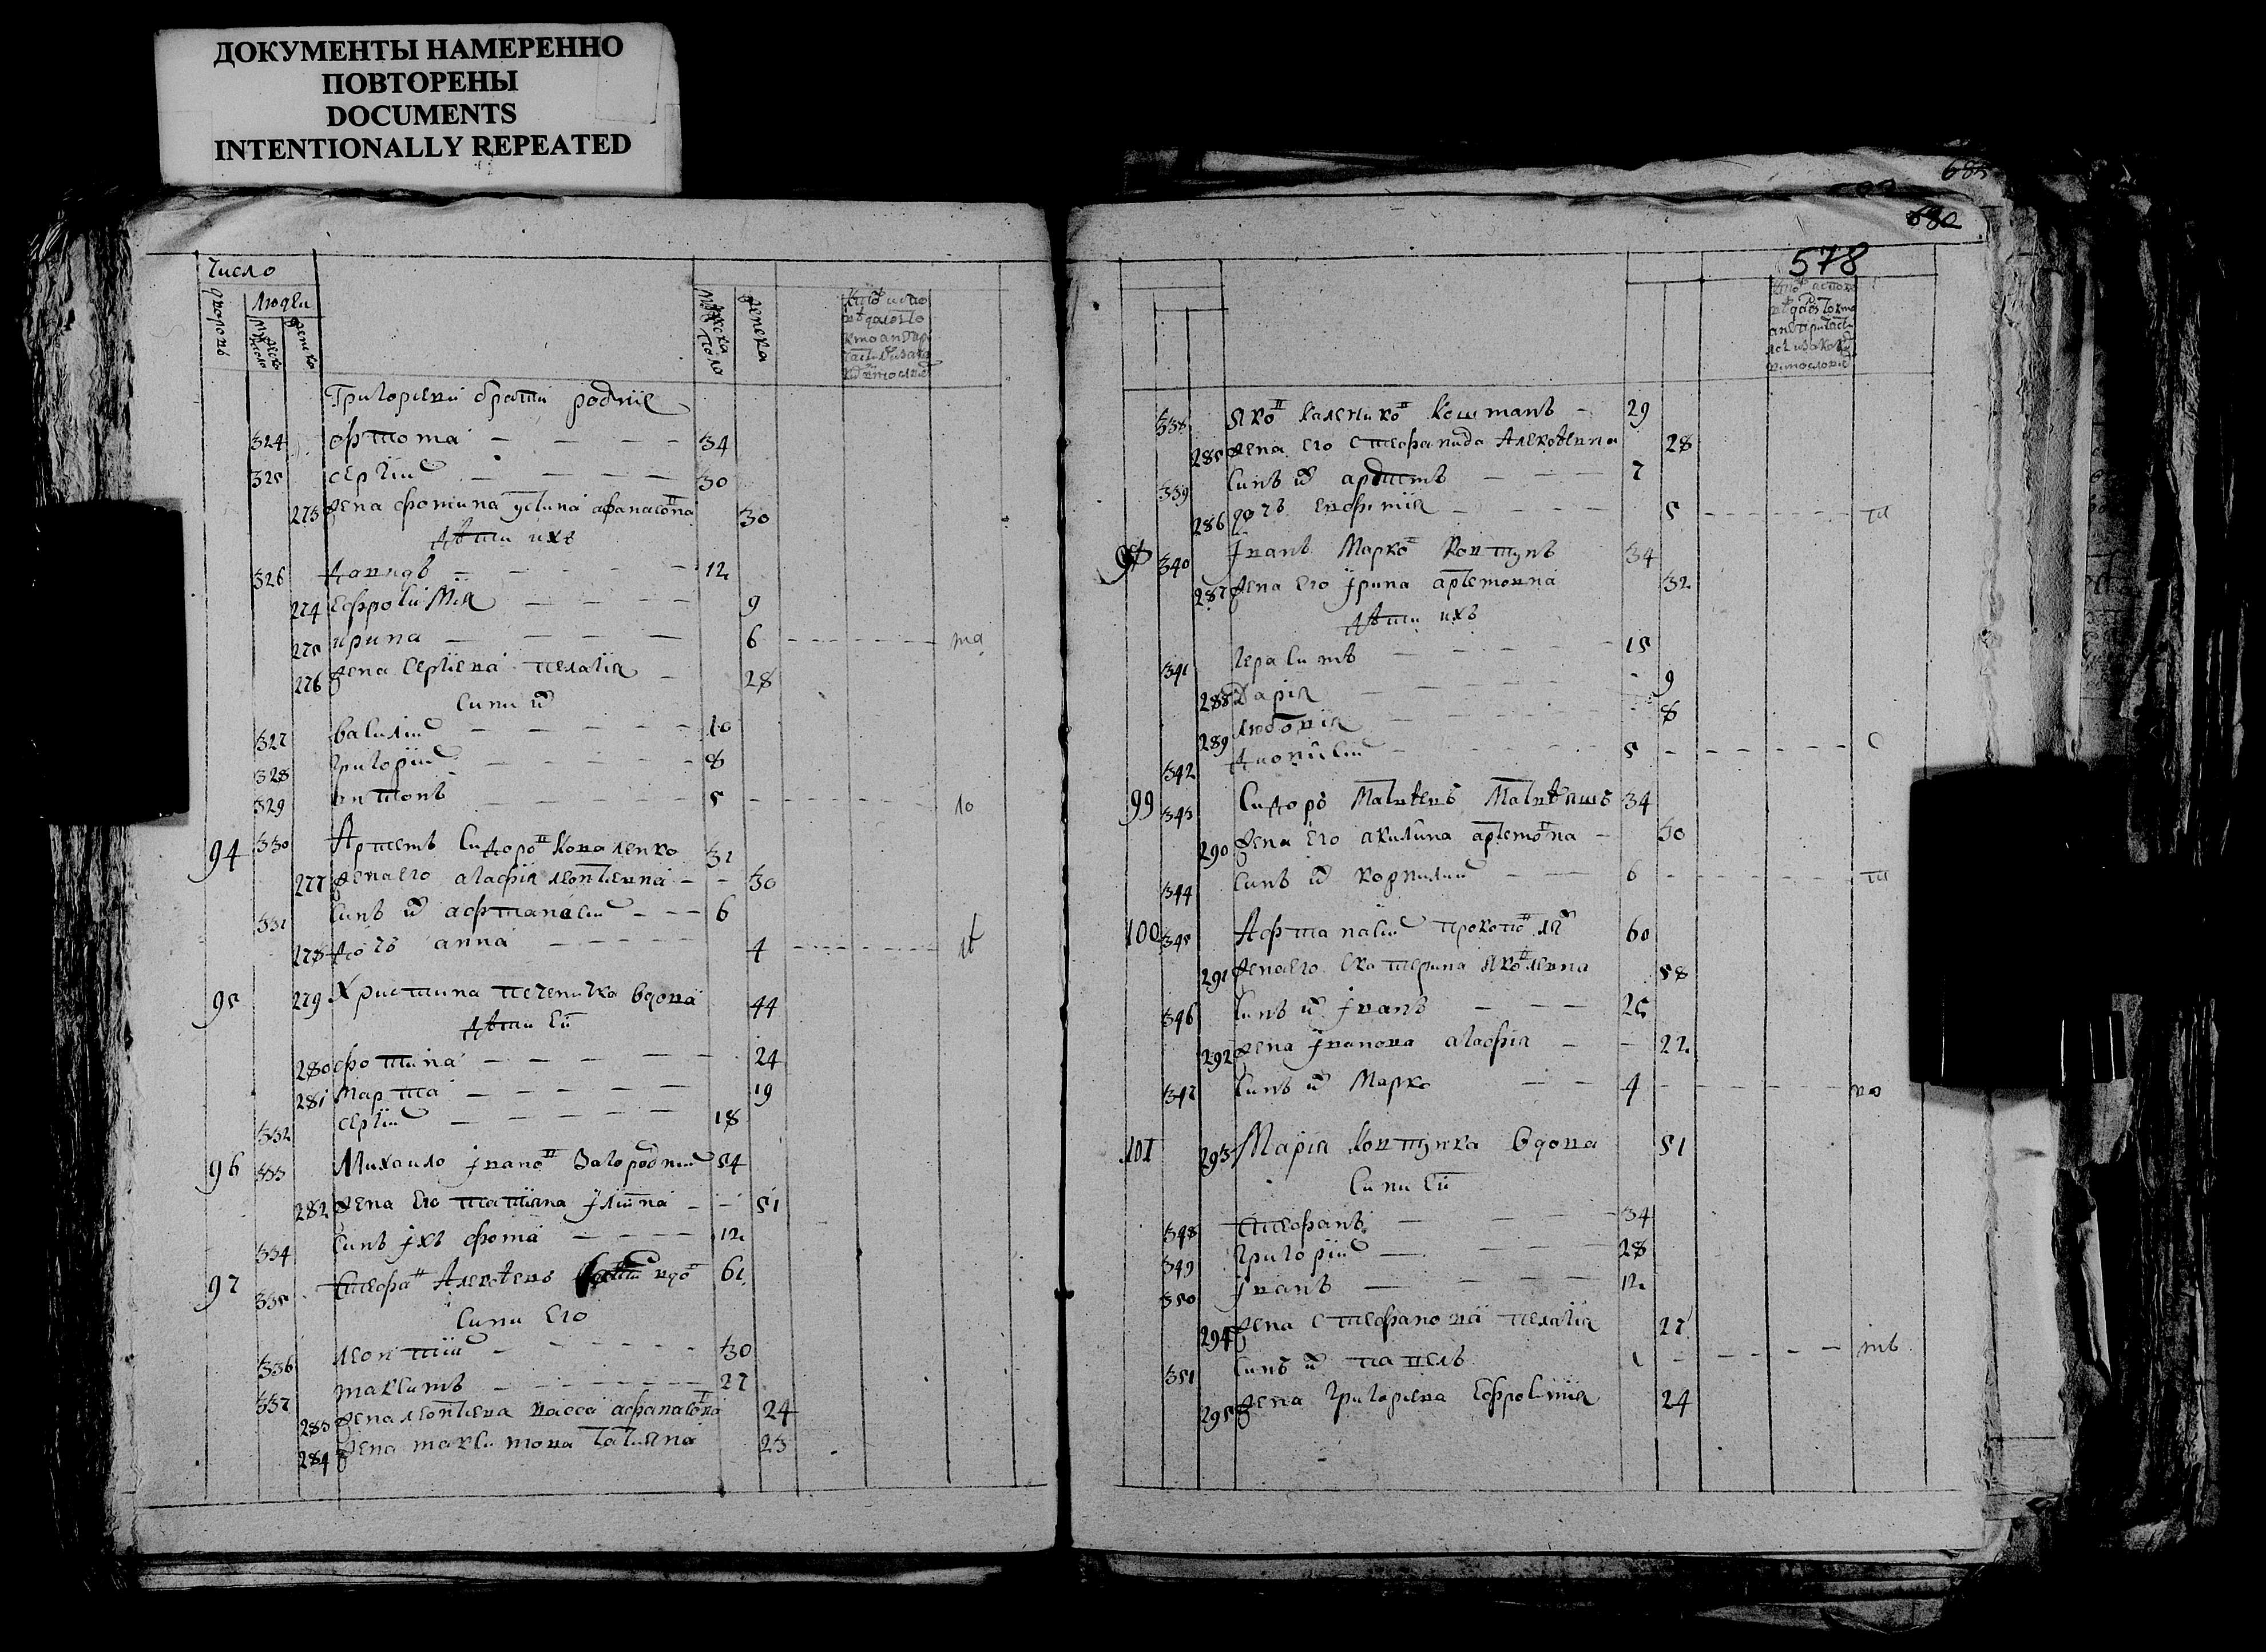 ДОКУМЕНТЫ НАМЕРЕННО
ПОВТОРЕНЫ
DOCUMENTS
INTENTIONALLY REPEATED
Число
дворовъ
людеи
мужеска пола
женска
Григориеви брати родние
324 фома 34
325 сергий 30
273 жена фомина устина афанасовна 30
дѣти ихъ
326 давидъ 12
274 ефросимия 9
275 ирина 6
276 жена сергиева пелагия 28
сини их
327 василий 10
328 григорий 8
329 антонъ 5
94 330 Артемъ Сидоров Коваленко 32
277 жена его агафия леонтиевна 30
331 синъ их афтанасий 6
278 дочъ анна 4
95 279 Христина печеничка вдова 44
дѣти еи
280 фотина 24
281 марта 19
332 сергий 18
96 333 Михаило Iванов Загородний 54
282 жена его татияна 51
334 синъ iхъ фома 12
97 335 Стефан Алексѣевъ вдов 61
сини его
336 леонтий 30
337 максимъ 27
283 жена леонтиева васса афанасовна 24
284 жена максимова татияна 23
685
680
578
338 яков калеников Коштанъ 29
285 жена его стефанида Алексѣевна 28
339 синъ их артемъ 7
286 дочъ евфимия 5
340 Iванъ Марков Ковтунъ 34
287 жена его iрина артемовна 32
дѣти ихъ
341 герасимъ 15
288 дария 9
289 любовия 8
342 дионисий 5
99 343 Сидоръ Матвѣевъ Матвѣяшъ 34
290 жена его акилина артемовна 30
344 синъ их корнилий 6
100 345 Афтанасий прокопов 60
291 жена его екатерина яковлевна 58
346 синъ их iванъ 25
292 жена iванова агафия 22
347 синъ их Марко 4
101 293 Мария Ковтунка вдова 51
сини еи
348 Стефанъ 34
349 григорий 28
350 iванъ 12
294 жена стефанова пелагия 27
351 синъ их павелъ 1
295 жена григориева ефросимия 24